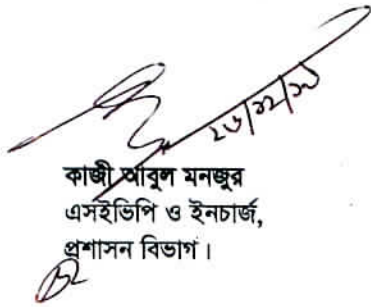 ২৬/১২/১৩
কাজী আবুল মনজুর
এসইভিপি ও ইনচার্জ,
প্রশাসন বিভাগ।